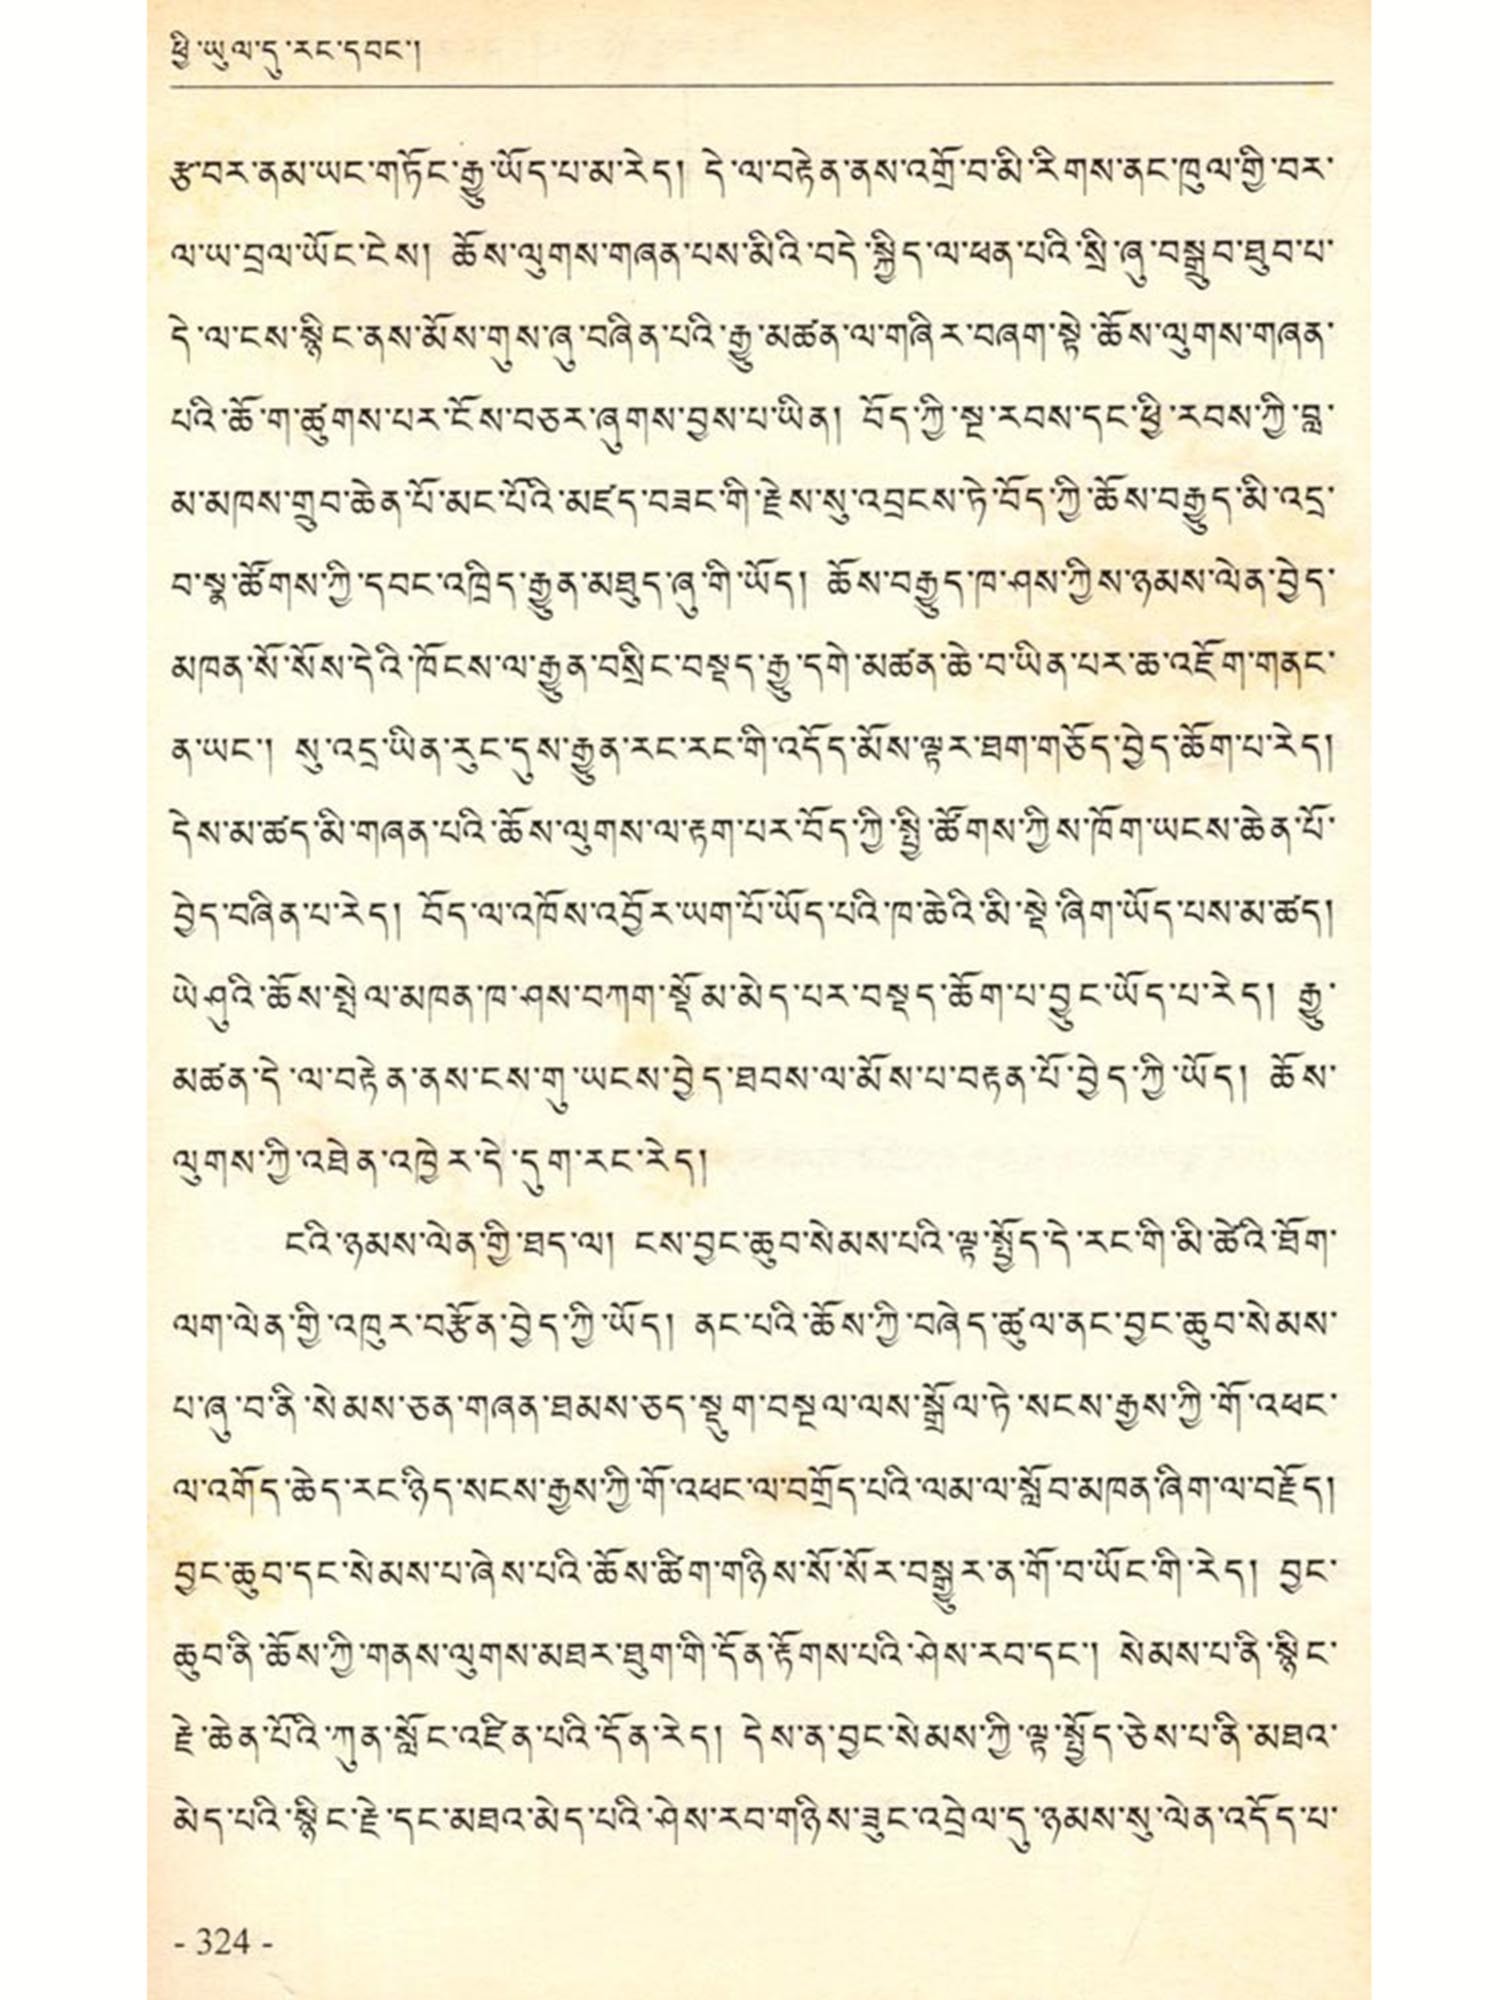 ཕྱི་ཡུལ་དུ་རང་དབང་།
རྩ་བར་ནམ་ཡང་གཏོང་རྒྱུ་ཡོད་པ་མ་རེད། དེ་ལ་བརྟེན་ནས་འགྲོ་བ་མི་རིགས་ནང་ཁུལ་གྱི་བར་
ལ་ཡ་བྲལ་ཡོང་ངེས། ཆོས་ལུགས་གཞན་པས་མིའི་བདེ་སྐྱིད་ལ་ཕན་པའི་སྲི་ཞུ་བསྒྲུབ་ཐུབ་པ་
དེ་ལ་ངས་སྙིང་ནས་མོས་གུས་ཞུ་བཞིན་པའི་རྒྱུ་མཚན་ལ་གཞིར་བཞག་སྟེ་ཆོས་ལུགས་གཞན་
པའི་ཆོ་ག་ཚུགས་པར་ངོས་བཅར་ཞུགས་བྱས་པ་ཡིན། བོད་ཀྱི་སྔ་རབས་དང་ཕྱི་རབས་ཀྱི་བླ་
མ་མཁས་གྲུབ་ཆེན་པོ་མང་པོའི་མཛད་བཟང་གི་རྗེས་སུ་འབྲངས་ཏེ་བོད་ཀྱི་ཆོས་བརྒྱུད་མི་འདྲ་
བ་སྣ་ཚོགས་ཀྱི་དབང་འཁྲིད་རྒྱུན་མཐུད་ཞུ་གི་ཡོད། ཆོས་བརྒྱུད་ཁ་ཤས་ཀྱིས་ཉམས་ལེན་བྱེད་
མཁན་སོ་སོས་དེའི་ཁོངས་ལ་རྒྱུན་བསྲིང་བསྡད་རྒྱུ་དགེ་མཚན་ཆེ་བ་ཡིན་པར་ཆ་འཇོག་གནང་
ན་ཡང་། སུ་འདྲ་ཡིན་རུང་དུས་རྒྱུན་རང་རང་གི་འདོད་མོས་ལྟར་ཐག་གཅོད་བྱེད་ཆོག་པ་རེད།
དེས་མ་ཚད་མི་གཞན་པའི་ཆོས་ལུགས་ལ་རྟག་པར་བོད་ཀྱི་སྤྱི་ཚོགས་ཀྱིས་ཁོག་ཡངས་ཆེན་པོ་
བྱེད་བཞིན་པ་རེད། བོད་ལ་འཁོས་འབྱོར་ཡག་པོ་ཡོད་པའི་ཁ་ཆེའི་མི་སྡེ་ཞིག་ཡོད་པས་མ་ཚད།
ཡེ་ཤུའི་ཆོས་སྤེལ་མཁན་ཁ་ཤས་བཀག་སྡོམ་མེད་པར་བསྡད་ཆོག་པ་བྱུང་ཡོད་པ་རེད། རྒྱུ་
མཚན་དེ་ལ་བརྟེན་ནས་ངས་གུ་ཡངས་བྱེད་ཐབས་ལ་མོས་པ་བརྟན་པོ་བྱེད་ཀྱི་ཡོད། ཆོས་
ལུགས་ཀྱི་འཐེན་འཁྱེར་དེ་དུག་རང་རེད།
ངའི་ཉམས་ལེན་གྱི་ཐད་ལ། ངས་བྱང་ཆུབ་སེམས་པའི་ལྟ་སྤྱོད་དེ་རང་གི་མི་ཚེའི་ཐོག་
ལག་ལེན་གྱི་འཁུར་བརྩོན་བྱེད་ཀྱི་ཡོད། ནང་པའི་ཆོས་ཀྱི་བཞེད་ཚུལ་ནང་བྱང་ཆུབ་སེམས་
པ་ཞུ་བ་ནི་སེམས་ཅན་གཞན་ཐམས་ཅད་སྡུག་བསྔལ་ལས་སྒྲོལ་ཏེ་སངས་རྒྱས་ཀྱི་གོ་འཕང་
ལ་འགོད་ཆེད་རང་ཉིད་སངས་རྒྱས་ཀྱི་གོ་འཕང་ལ་བགྲོད་པའི་ལམ་ལ་སློབ་མཁན་ཞིག་ལ་བརྗོད།
བྱང་ཆུབ་དང་སེམས་པ་ཞེས་པའི་ཆོས་ཚིག་གཉིས་སོ་སོར་བསྒྱུར་ན་གོ་བ་ཡོང་གི་རེད། བྱང་
ཆུབ་ནི་ཆོས་ཀྱི་གནས་ལུགས་མཐར་ཐུག་གི་དོན་རྟོགས་པའི་ཤེས་རབ་དང་། སེམས་པ་ནི་སྙིང་
རྗེ་ཆེན་པོའི་ཀུན་སློང་འཛིན་པའི་དོན་རེད། དེས་ན་བྱང་སེམས་ཀྱི་ལྟ་སྤྱོད་ཅེས་པ་ནི་མཐའ་
མེད་པའི་སྙིང་རྗེ་དང་མཐའ་མེད་པའི་ཤེས་རབ་གཉིས་ཟུང་འབྲེལ་དུ་ཉམས་སུ་ལེན་འདོད་པ་
- 324 -